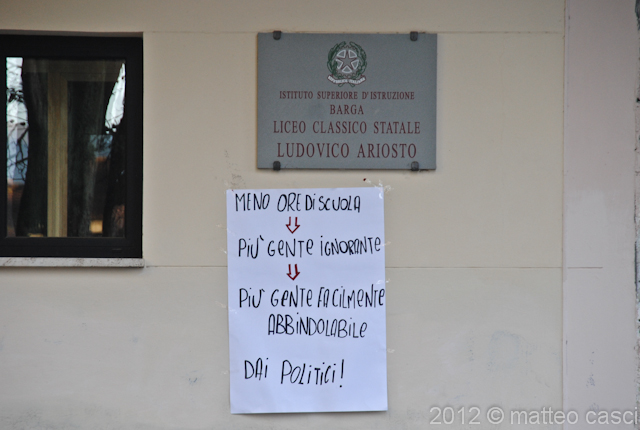 ISTITUTO SUPERIORE D'ISTRUZIONE
BARGA
LICEO CLASSICO STATALE
LUDOVICO ARIOSTO
MENO ORE DI SCUOLA
PIU' GENTE IGNORANTE
PIU' GENTE FACILMENTE
ABBINDOLABILE
DAI POLITICI!
2012 © matteo casci